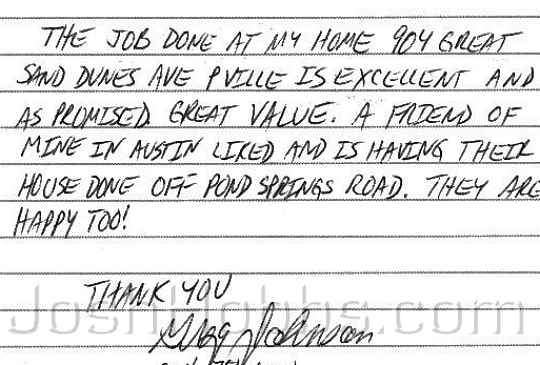 THE JOB DONE AT MY HOME 904 GREAT
SAND DUNES AVE PVILLE IS EXCELLENT AND
AS PROMISED GREAT VALUE. A FRIEND OF
MINE IN AUSTIN LIKED AND IS HAVING THEIR
HOUSE DONE OFF POND SPRINGS ROAD. THEY ARE
HAPPY TOO!
THANK YOU
JoshHobbs.com
Gregg Johnson